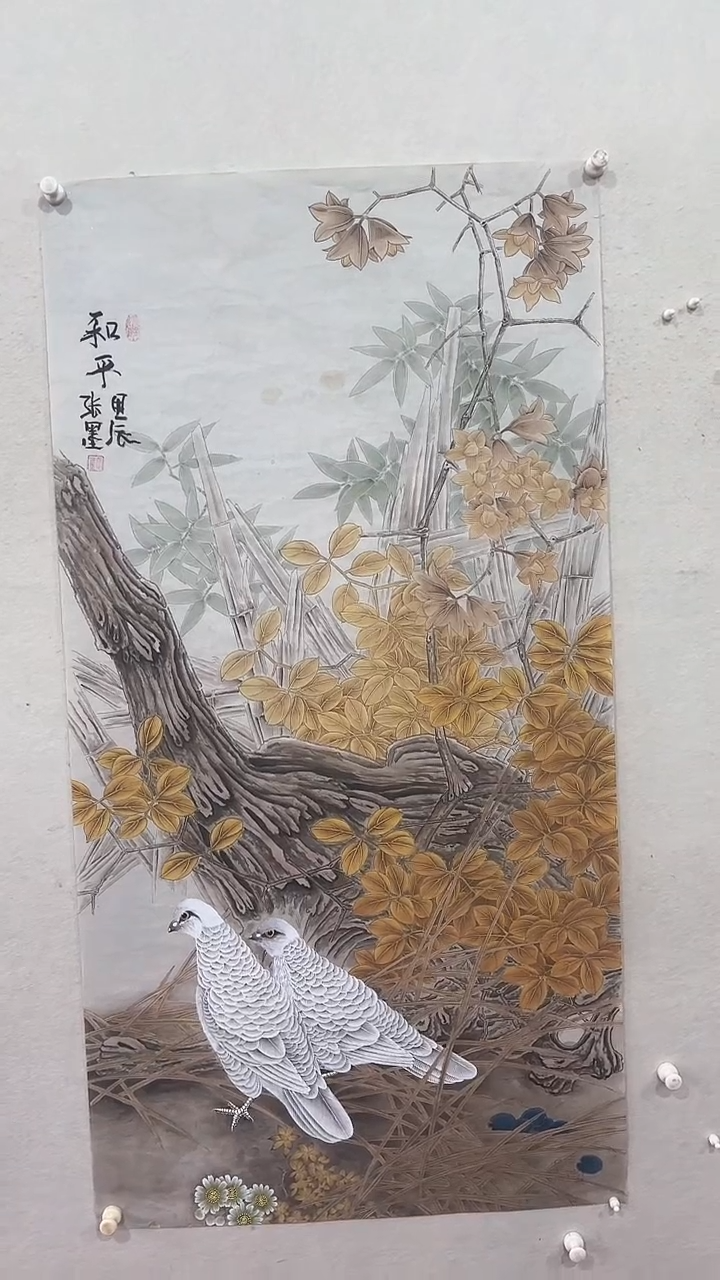 和平
甲辰
张墨